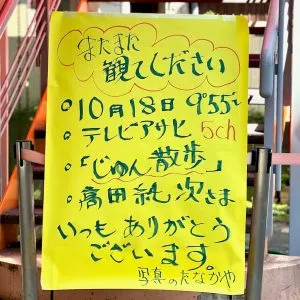 またまた
観てください
○10月18日 9°55~
○テレビアサヒ 5ch
○「じゅん散歩」
○高田純次さま
いつもありがとう
ございます。
写真のたなかや